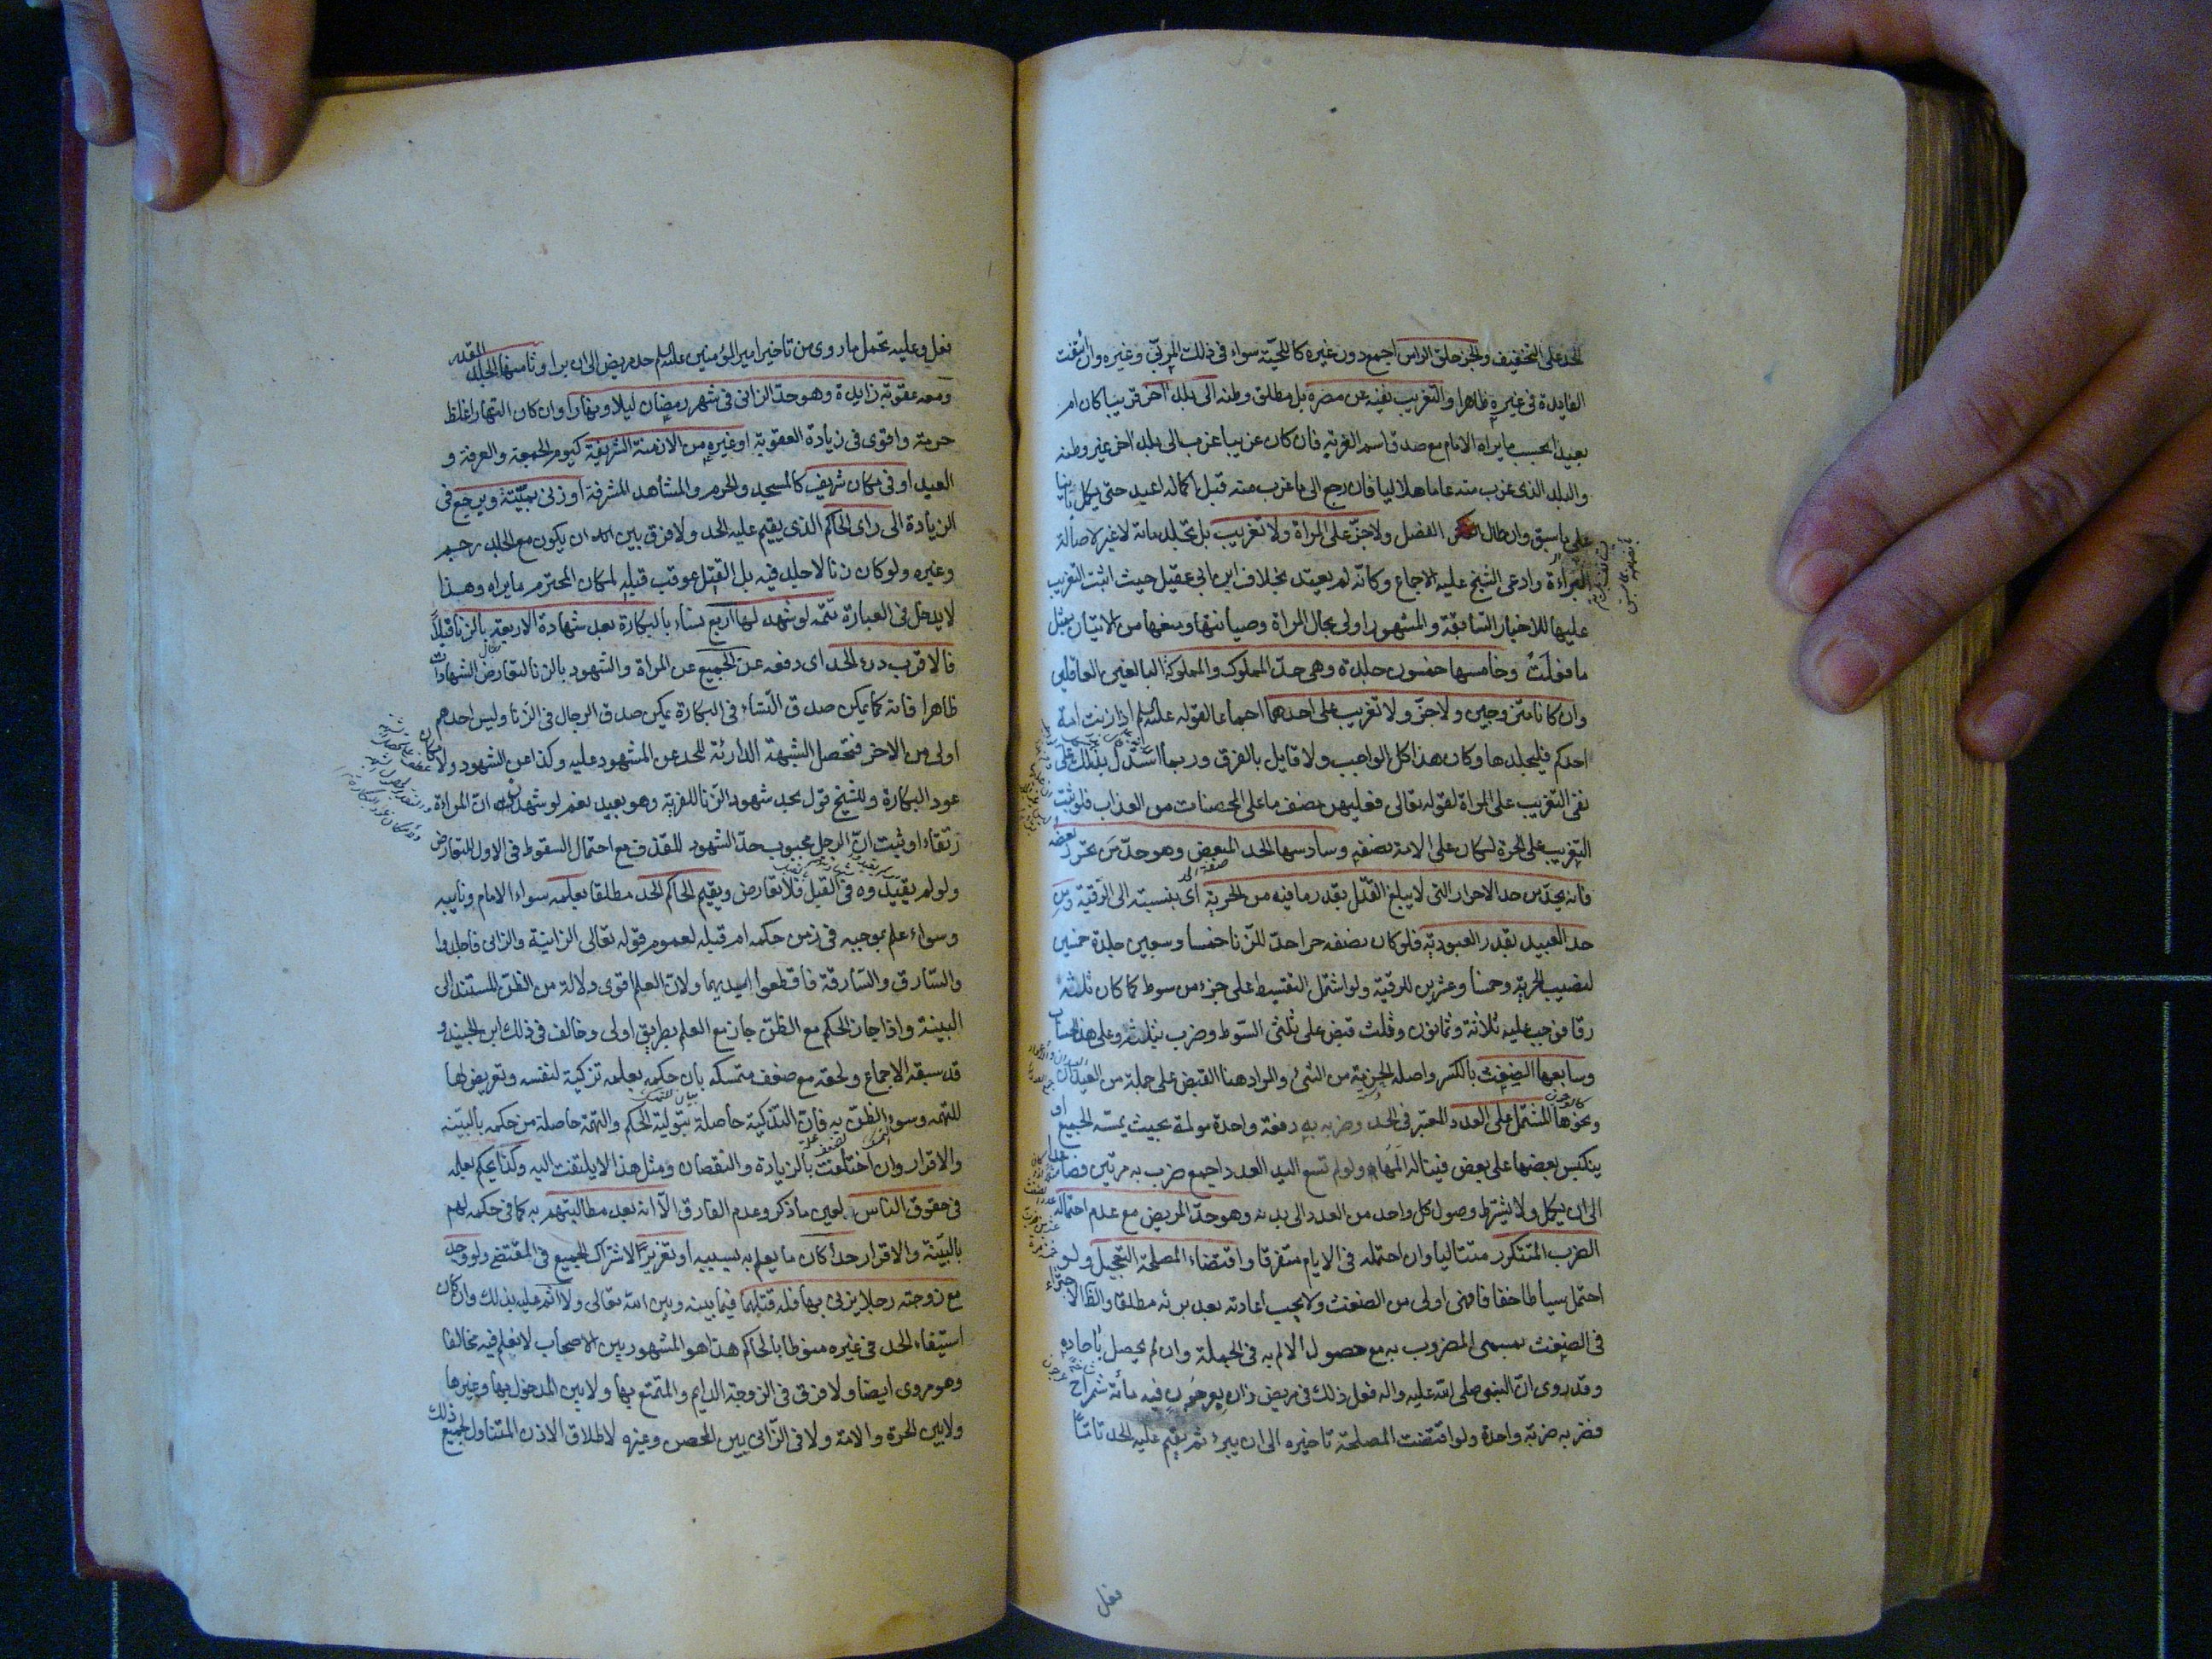 الحد على التخفيف والجز حلق الراس اجمع دون غيره كاللحية سواء في ذلك المربّي وغيره وان انتفت
الفايدة في غيره ظاهرا والتغريب نفيه عن مصره بل مطلق وطنه الى بلد اخر قريبا كان ام
بعيدا بحسب ما يراه الامام مع صدق اسم الغربة فان كان غريبا غرب الى بلد اخر غير وطنه
والبلد الذي غرب منه عاما هلاليا فان رجع الى ما غرب منه قبل اكماله اعيد حتى يكمل بانيا
على ما سبق وان طال الفصل ولا جزّ على المراة ولا تغريب بل تجلد مائة لا غير لاصالة
البراءة وادعى الشيخ عليه الاجماع وكانّه لم يعتد بخلاف ابن ابي عقيل حيث اثبت التغريب
عليها للاخبار السابقة والمشهور اولى بحال المراة وصيانتها ومنعها من الاتيان بمثل
ما فعلت وخامسها خمسون جلدة وهي حدّ المملوك والمملوكة البالغين العاقلين
وان كانا متزوجين ولا جزّ ولا تغريب على احدهما اجماعا لقوله عليه السلم اذا زنت امة
احدكم فليجلدها وكان هذا كل الواجب ولا قايل بالفرق وربما استدل بذلك على
نفي التغريب على المراة لقوله تعالى فعليهن نصف ما على المحصنات من العذاب فلو ثبت
التغريب على الحرة لكان على الامة نصفه وسادسها الحد المبعض وهو حدّ من تحرر بعضه
فانه يحدّ من حد الاحرار التي لا يبلغ القتل بقدر ما فيه من الحرية اى بنسبته الى الرقية ومن
حد العبيد بقدر العبودية فلو كان نصفه حرا حدّ للزنا خمسا وسبعين جلدة خمسين
لنصيب الحرية وخمسا وعشرين للرقية ولو اشتمل التقسيط على جزء من سوط كما كان ثلثه
رقا فوجب عليه ثلاثة وثمانون وثلث قبض على ثلثي السّوط وضرب بثلثه وعلى هذا الحساب
وسابعها الضغث بالكسر واصله الحزمة من الشئ والمراد هنا القبض على جملة من العيدان
ونحوها المشتمل على العدد المعتبر في الحد وضربه به دفعة واحدة مولمة بحيث يمسه الجميع او
ينكبس بعضها على بعض فيناله المها ولو لم تسع اليد العدد اجمع ضرب به مرتين فصاعدا
الى ان يكمل ولا يشترط وصول كل واحد من العدد الى بدنه وهو حدّ المريض مع عدم احتماله
الضرب المتكرر متتاليا وان احتمله في الايام متفرقا واقتضاء المصلحة التعجيل ولو
احتمل سياطا خفافا فهى اولى من الضغث ولا يجب اعادته بعد برئه مطلقا والظاهر الاجتزاء
في الضغث بمسمى المضروب به مع حصول الالم به في الجملة وان لم يحصل باحاده
وقد روى انّ النبي صلى الله عليه واله فعل ذلك في مريض زان بعرجون فيه مائة شمراخ
فضربه ضربة واحدة ولو اقتضت المصلحة تاخيره الى ان يبرء ثم يقيم عليه الحد تامّا
فعل
فعل وعليه تحمل ما روى من تاخير امير المؤمنين عليه السلم حد مريض الى ان برا وثامنها الجلد المقدر
ومعه عقوبة زايدة وهو حدّ الزاني في شهر رمضان ليلا ونهارا وان كان النهار اغلظ
حرمة واقوى في زيادة العقوبة او غيره من الازمنة الشريفة كيوم الجمعة والعرفة و
العيد او في مكان شريف كالمسجد والحرم والمشاهد المشرفة او زنى بميّتة ويرجع في
الزيادة الى راى الحاكم الذي يقيم عليه الحد ولا فرق بين ان يكون مع الجلد رجم
وغيره ولو كان زنا لا جلد فيه بل القتل عوقب قبله لمكان المحترم ما يراه وهذا
لا يدخل في العبارة تتمّه لو شهد لها اربع نساء بالبكارة بعد شهادة الاربعة بالزنا قبلاً
فالاقرب درء الحد اى دفعه عن الجميع عن المراة والشهود بالزنا لتعارض الشهادات
ظاهرا فانه كما يمكن صدق النّساء في البكارة يمكن صدق الرجال في الزنا وليس احدهم
اولى من الاخر فتحصل الشبهة الدارئة للحد عن المشهود عليه وكذا عن الشهود ولامكان
عود البكارة وللشيخ قول بحد شهود الزنا للفرية وهو بعيد نعم لو شهدن انّ المراءة
رتقاء او ثبت انّ الرجل مجبوب حدّ الشهود للقذف مع احتمال السقوط في الاول للتعارض
ولو لم يقيّدوه في القبل فلا تعارض ويقيم الحاكم الحد مطلقا بعلمه سواء الامام ونايبه
وسواء علم بموجبه في زمن حكمه ام قبله لعموم قوله تعالى الزانية والزاني فاجلدوا
والسّارق والسّارقة فاقطعوا ايديهما ولان العلم اقوى دلالة من الظنّ المستند الى
البينة واذا جاز الحكم مع الظنّ جاز مع العلم بطريق اولى وخالف في ذلك ابن الجنيد و
قد سبقه الاجماع ولحقه مع ضعف متمسكه بان حكمه بعلمه تزكية لنفسه وتعريض لها
للتهمه وسوء الظنّ به فانّ التزكية حاصلة بتولية الحكم والتهمة حاصلة من حكمه بالبيّنه
والاقرار وان اختلفت بالزيادة والنقصان ومثل هذا لا يلتفت اليه وكذا يحكم بعلمه
في حقوق الناس لعين ما ذكر وعدم الفارق الّا انه بعد مطالبتهم به كما في حكمه لهم
بالبيّنة والاقرار حدا كان ما يعلم بسببه او تعزيرا لاشتراك الجميع في المقتضى ولو وجد
مع زوجته رجلا يزني بها فله قتلهما فيما بينه وبين الله تعالى ولا اثم عليه بذلك وان كان
استيفاء الحد في غيره منوطا بالحاكم هذا هو المشهور بين الاصحاب لا نعلم فيه مخالفا
وهو مروى ايضا ولا فرق في الزوجة الدايم والمتمتع بها ولا بين المدخول بها وغيرها
ولا بين الحرة والامة ولا في الزّاني بين المحصن وغيره لاطلاق الاذن المتناول لجميع ذلك